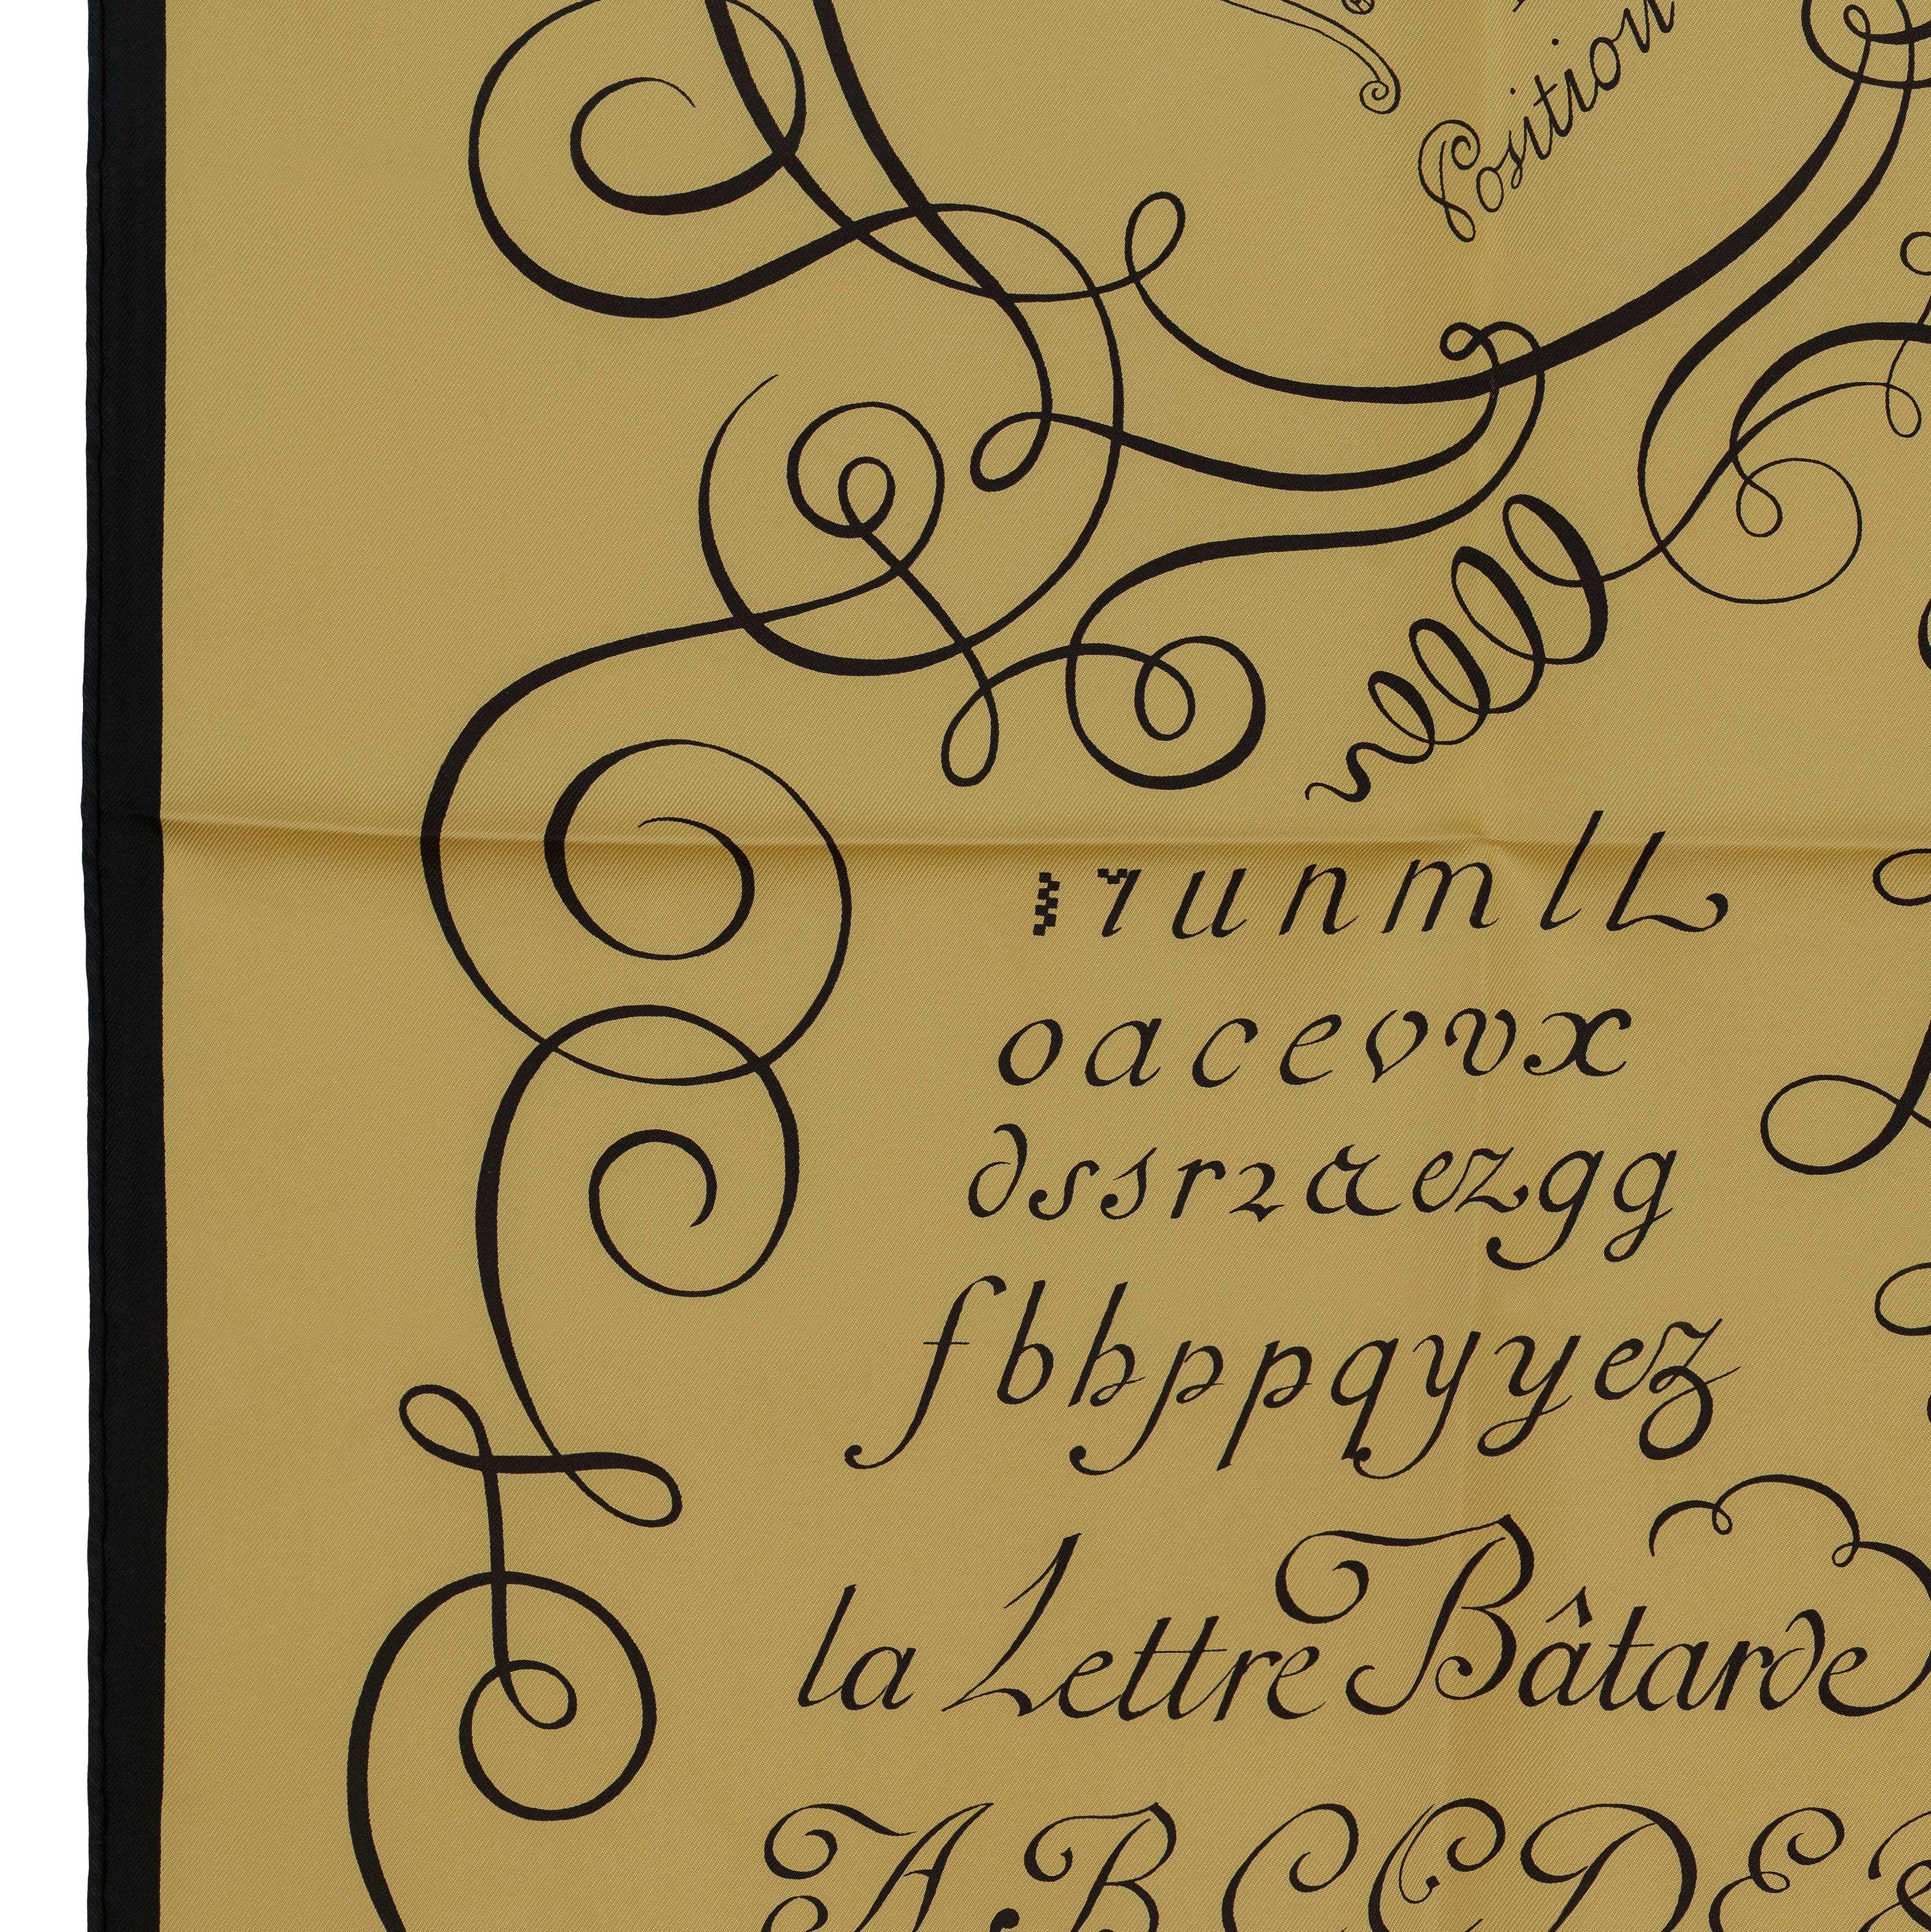 Position
ı u n m l L
o a c e v v x
d s s r 2 a ez g g
f b h p p q y y ez
la Lettre Bâtarde
A B C C D E